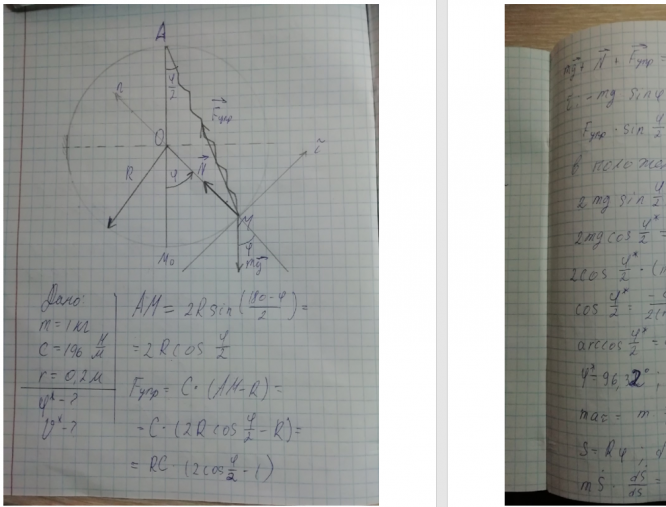 A
φ/2
n
Fупр
O
R
φ
N
τ
M
M₀
φ
mg
Дано:
m = 1 кг
C = 196 Н/м
r = 0,2 м
φˣ - ?
υˣ - ?
AM = 2R sin((180-φ)/2) =
= 2R cos φ/2
Fупр = C · (AM - R) =
= C · (2R cos φ/2 - R) =
= RC · (2cos φ/2 - 1)
mg + N + Fупр =
τ: -mg sin φ
Fупр · sin φ/2
в полож
2mg sin φ/2
2mg cos φˣ/2 =
2cos φˣ/2 · (
cos φˣ/2 =
arccos φˣ/2 =
φˣ = 96,32° ;
maₛ = m
S = Rφ ;
mṠ · dṠ/dS =